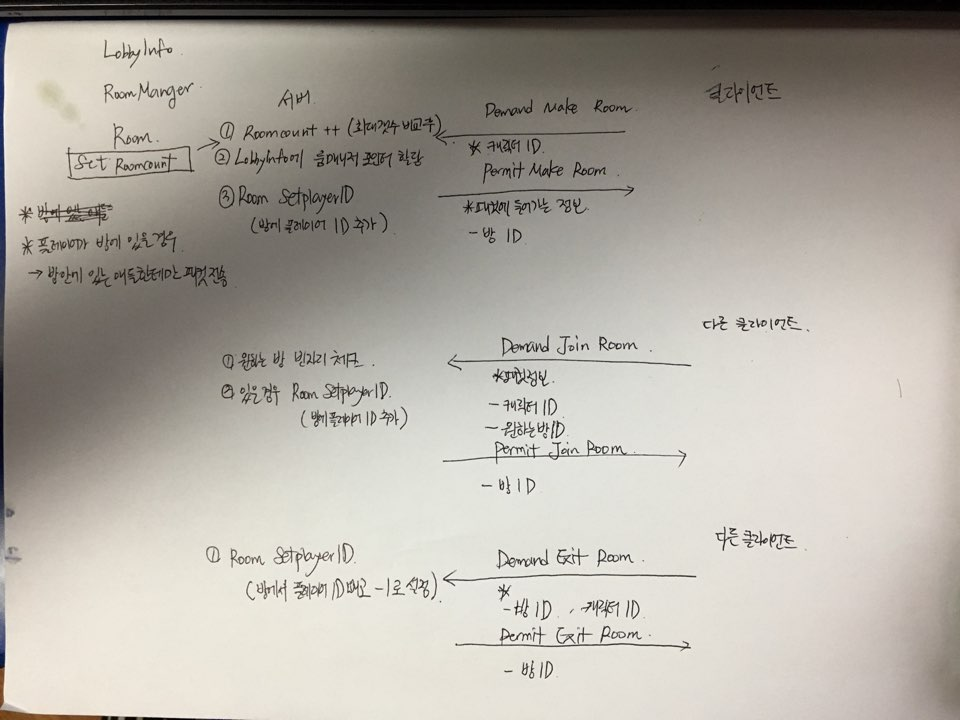 LobbyInfo.
RoomManger.
Room.
Set Roomcount
* 플레이어가 방에 있을 경우
→ 방안에 있는 애들한테만 패킷전송
서버
클라이언트
① Roomcount ++ (최대갯수 비교후)
② LobbyInfo에 룸매니저 포인터 할당
③ Room SetplayerID
(방에 플레이어 ID 추가)
Demand Make Room.
* 캐릭터 ID.
Permit Make Room.
* 패킷에 들어가는 정보.
- 방 ID
다른 클라이언트.
① 원하는 방 빈자리 체크.
② 있을경우 Room SetplayerID.
(방에 플레이어 ID 추가)
Demand Join Room.
* 패킷정보.
- 캐릭터 ID
- 원하는방ID
Permit Join Room.
- 방 ID
다른 클라이언트.
① Room SetplayerID.
(방에서 플레이어 ID 빼고 -1로 설정)
Demand Exit Room.
*
- 방 ID, 캐릭터 ID.
Permit Exit Room.
- 방 ID